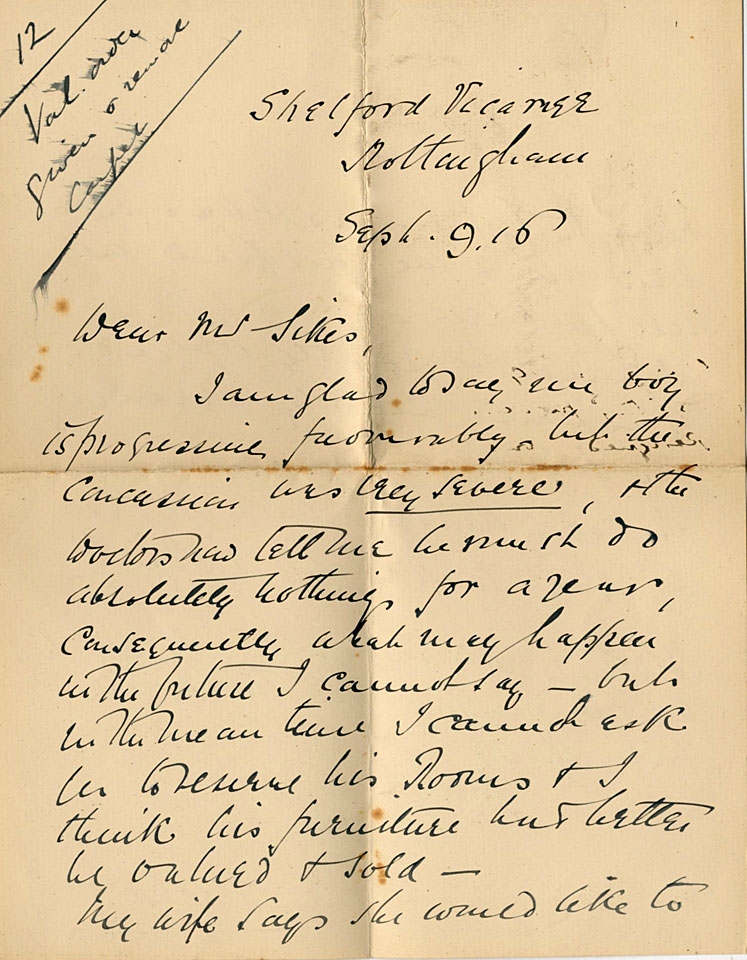 12
Val. order
given & remove
Carpet
Shelford Vicarage
Nottingham
Sept. 9. 16
Dear Mr Sikes,
I am glad to say our boy
is progressing favourably, but the
concussion was very severe, & the
Doctors now tell me he must do
absolutely nothing for a year,
consequently what may happen
in the future I cannot say – but
in the mean time I cannot ask
you to reserve his Rooms & I
think his furniture had better
be valued & sold –
My wife says she would like to